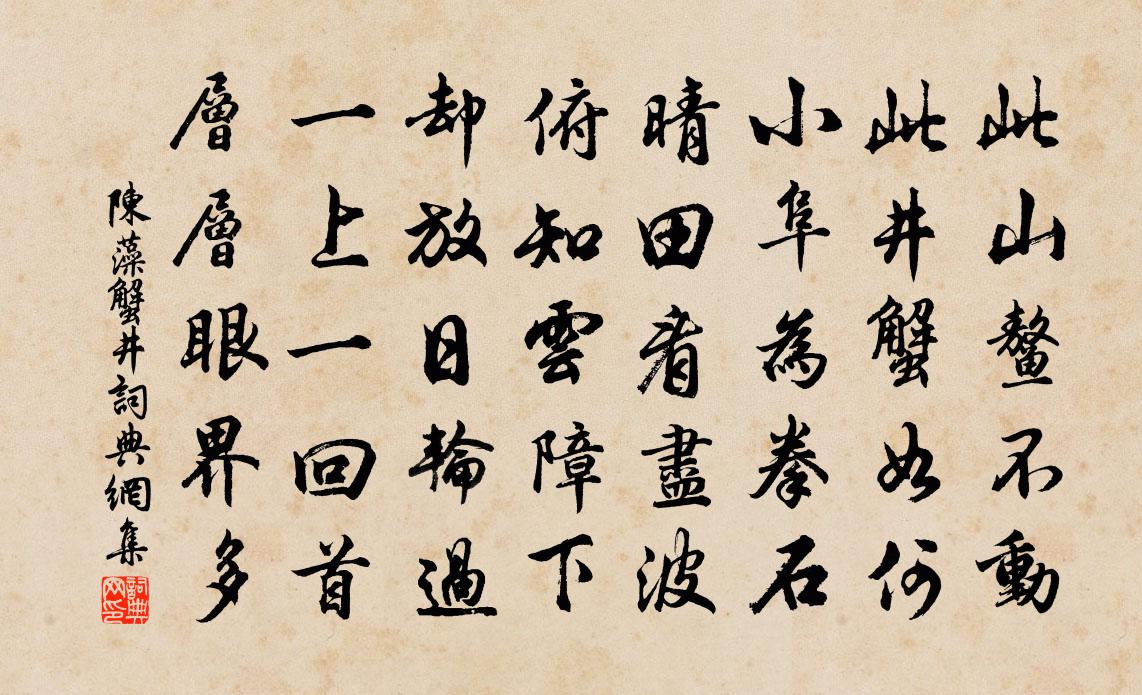 此山鼇不動
此井蟹如何
小阜為拳石
晴田看盡波
俯知雲障下
却放日輪過
一上一回首
層層眼界多
陳藻蟹井詞典網集
詞典网印